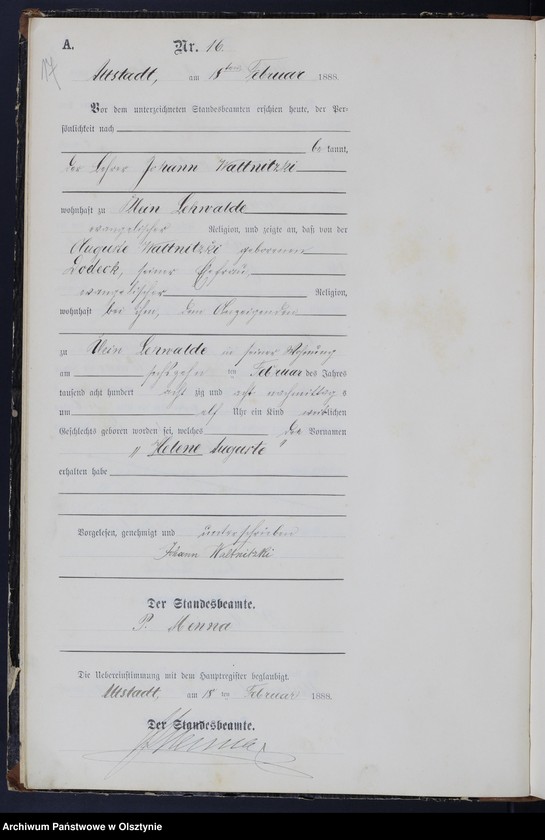 A.
Nr. 16.
17
Altstadt, am 18ten Februar 1888.
Vor dem unterzeichneten Standesbeamten erschien heute, der Per-
sönlichkeit nach
be kannt,
der Lehrer Johann Waltnitzki
wohnhaft zu Klein Lehwalde
evangelischer Religion, und zeigte an, daß von der
Auguste Waltnitzki geborenen
Lodeck, seiner Ehefrau,
evangelischer Religion,
wohnhaft bei ihm, dem Anzeigenden
zu Klein Lehwalde in seiner Wohnung
am sechszehn ten Februar des Jahres
tausend acht hundert acht zig und acht nachmittags
um elf Uhr ein Kind weiblichen
Geschlechts geboren worden sei, welches die Vornamen
„Helene Auguste"
erhalten habe
Vorgelesen, genehmigt und unterschrieben
Johann Waltnitzki
Der Standesbeamte.
P. Menna
Die Uebereinstimmung mit dem Hauptregister beglaubigt.
Altstadt, am 18 ten Februar 1888.
Der Standesbeamte.
Menna
Archiwum Państwowe w Olsztynie